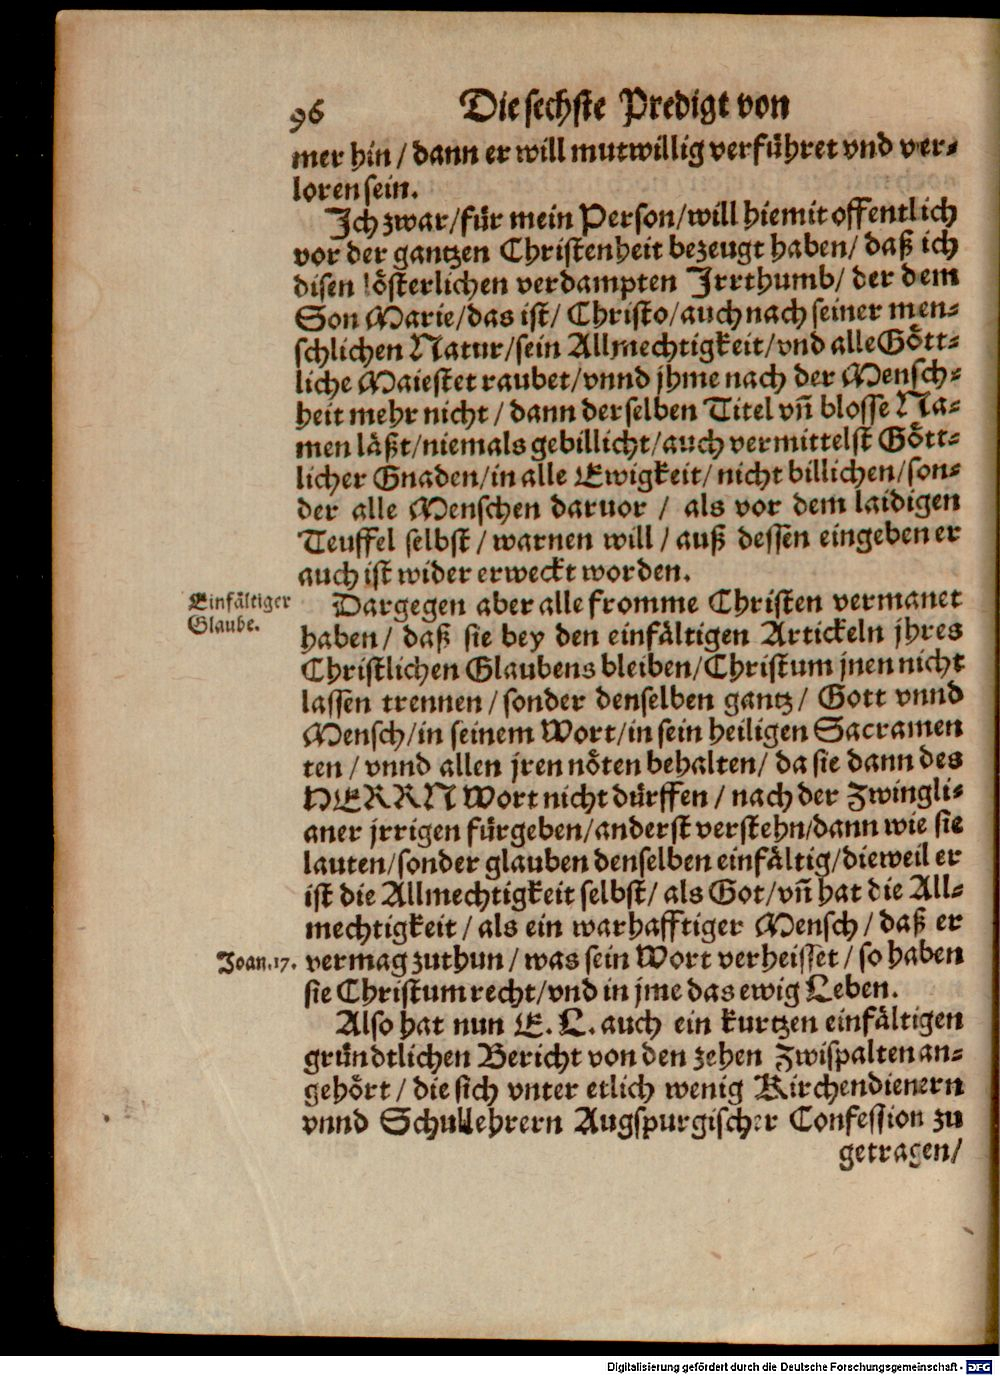 96 Die sechste Predigt von
mer hin / dann er will mutwillig verführet vnd ver-
loren sein.
Ich zwar/für mein Person/will hiemit offentlich
vor der gantzen Christenheit bezeugt haben/ daß ich
disen lösterlichen verdampten Irrthumb/ der dem
Son Marie/das ist/ Christo/auch nach seiner men-
schlichen Natur/sein Allmechtigkeit/vnd alle Gött-
liche Maiestet raubet/vnnd jhme nach der Mensch-
heit mehr nicht / dann derselben Titel vñ blosse Na-
men läßt/niemals gebillicht/auch vermittelst Gött-
licher Gnaden/in alle Ewigkeit/ nicht billichen/son-
der alle Menschen daruor / als vor dem laidigen
Teuffel selbst / warnen will / auß dessen eingeben er
auch ist wider erweckt worden.
Einfältiger
Glaube.
Dargegen aber alle fromme Christen vermanet
haben/ daß sie bey den einfältigen Artickeln jhres
Christlichen Glaubens bleiben/Christum jnen nicht
lassen trennen / sonder denselben gantz / Gott vnnd
Mensch/in seinem Wort/in sein heiligen Sacramen
ten / vnnd allen jren nöten behalten/ da sie dann des
HERRN Wort nicht dürffen / nach der Zwingli-
aner jrrigen fürgeben/anderst verstehn/dann wie sie
lauten/sonder glauben denselben einfältig/dieweil er
ist die Allmechtigkeit selbst/ als Got/vñ hat die All-
mechtigkeit / als ein warhafftiger Mensch / daß er
Joan.17. vermag zuthun / was sein Wort verheisset / so haben
sie Christum recht/vnd in jme das ewig Leben.
Also hat nun E. L. auch ein kurtzen einfältigen
gründtlichen Bericht von den zehen Zwispalten an-
gehört / die sich vnter etlich wenig Kirchendienern
vnnd Schullehrern Augspurgischer Confession zu
getragen/
Digitalisierung gefördert durch die Deutsche Forschungsgemeinschaft - DFG